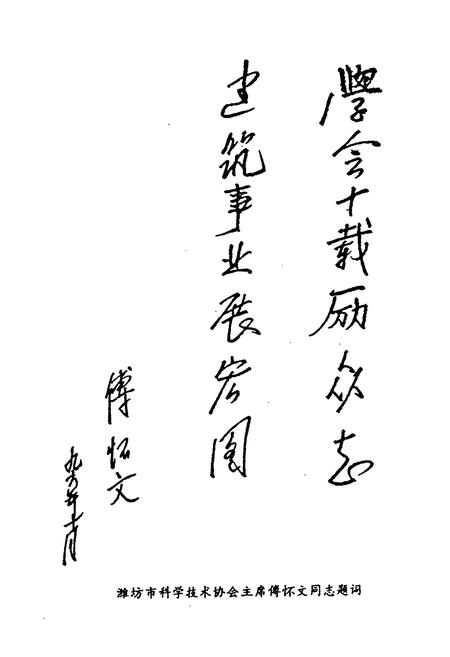 學会十载励众志
建筑事业展宏图
傅怀文
九六年十月
潍坊市科学技术协会主席傅怀文同志题词